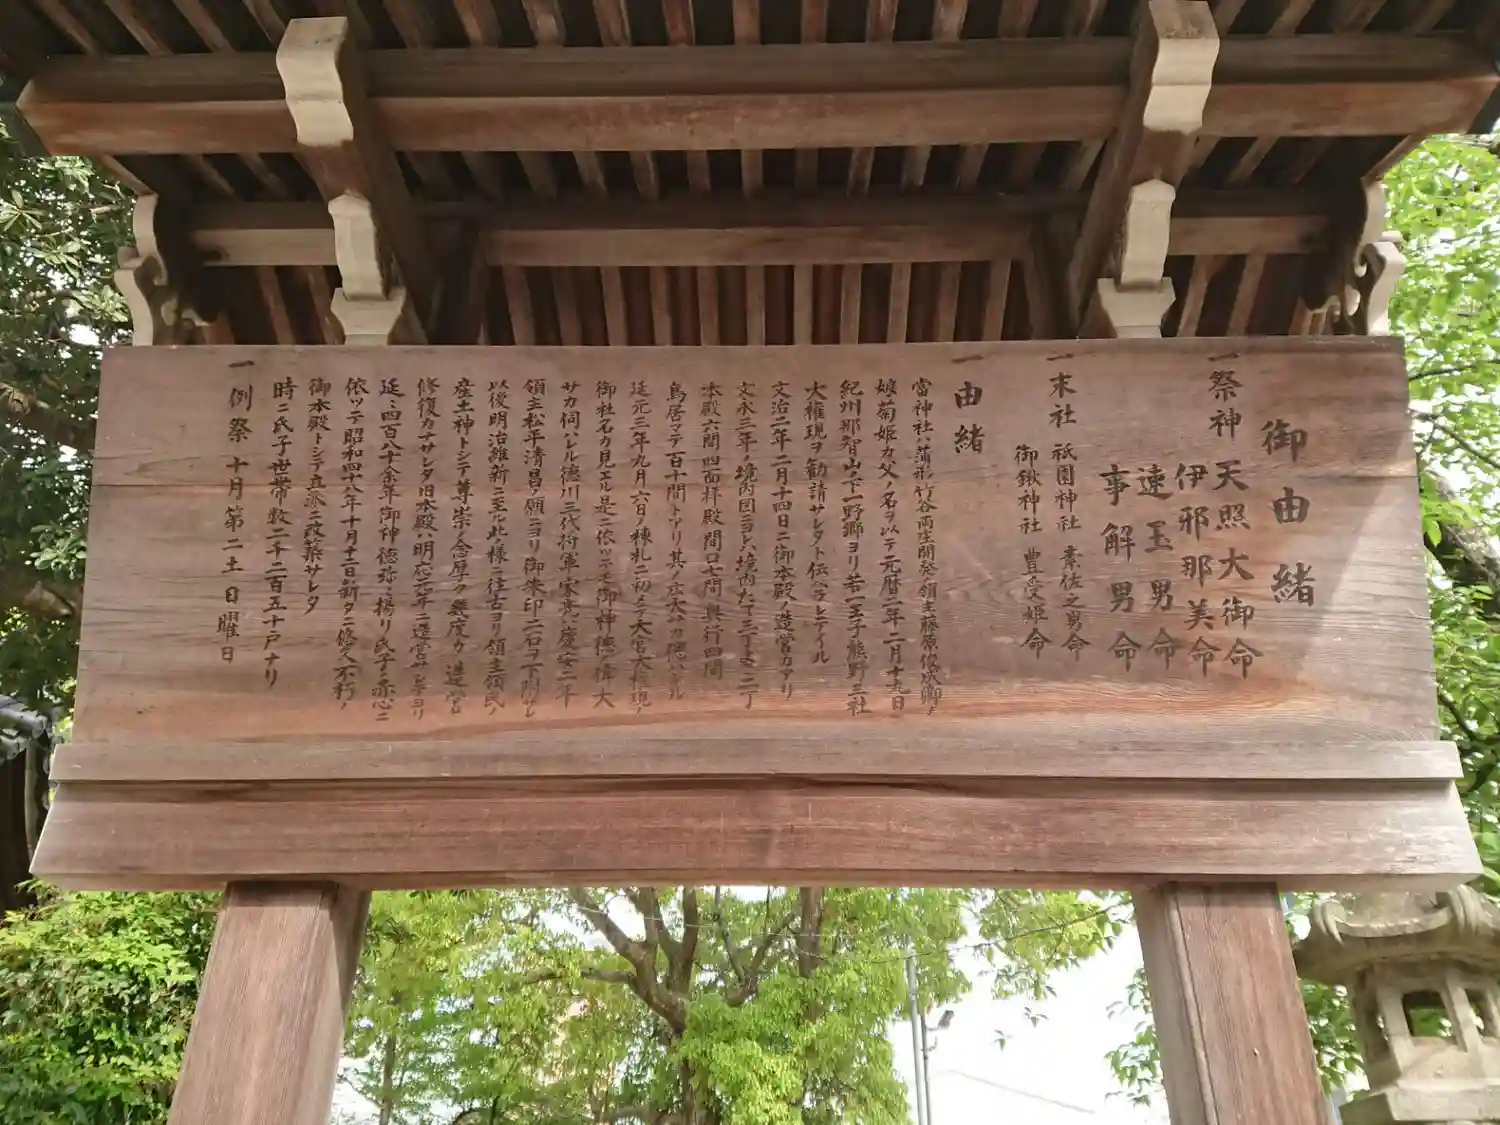 御由緒
一祭神 天照大御命
伊邪那美命
速玉男命
事解男命
一末社 祇園神社 素佐之男命
御鍬神社 豊受姫命
一由緒
當神社ハ蒲形竹谷両庄開発ノ領主藤原俊成卿ノ
娘菊姫カ父ノ名ヲ以テ元暦二年二月十九日
紀州那智山ノ下一野郷ヨリ若一王子熊野三社
大権現ヲ勧請サレタト伝ヘラレテイル
文治二年二月十四日ニ御本殿ノ造営カアリ
文永三年ノ境内図ニヨレハ境内たて三丁よこ二丁
本殿六間四面拝殿間口七間奥行四間
鳥居マテ百十間トアリ其ノ広大サカ偲ハレル
延元三年九月六日ノ棟札ニ初メテ大宮大権現ノ
御社名カ見エル是ニ依ツテモ御神徳ノ偉大
サカ伺ハレル徳川三代将軍家光ハ慶安二年
領主松平清昌ノ願ニヨリ御朱印二石ヲ下附サレ
以後明治維新ニ至ル此ノ様ニ往古ヨリ領主領民ノ
産土神トシテ尊崇ノ念厚ク幾度カ造営ヤ
修復カナサレタ旧本殿ハ明応元年ニ造営サレテヨリ
延々四百八十余年御神徳弥々揚リ氏子ノ赤心ニ
依ツテ昭和四十八年十月十二日新タニ修久不朽ノ
御本殿トシテ立派ニ改築サレタ
時ニ氏子世帯数二千二百五十戸ナリ
一例祭 十月第二土日曜日